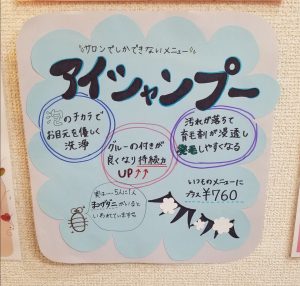 サロンでしかできないメニュー
アイシャンプー
泡のチカラで
お目元を優しく
洗浄
グルーの付きが
良くなり持続力
UP↑↑
汚れが落ちて
育毛剤が浸透し
発毛しやすくなる
実は…5人に1人
まつげダニがいると
いわれています
いつものメニューに
プラス ¥760